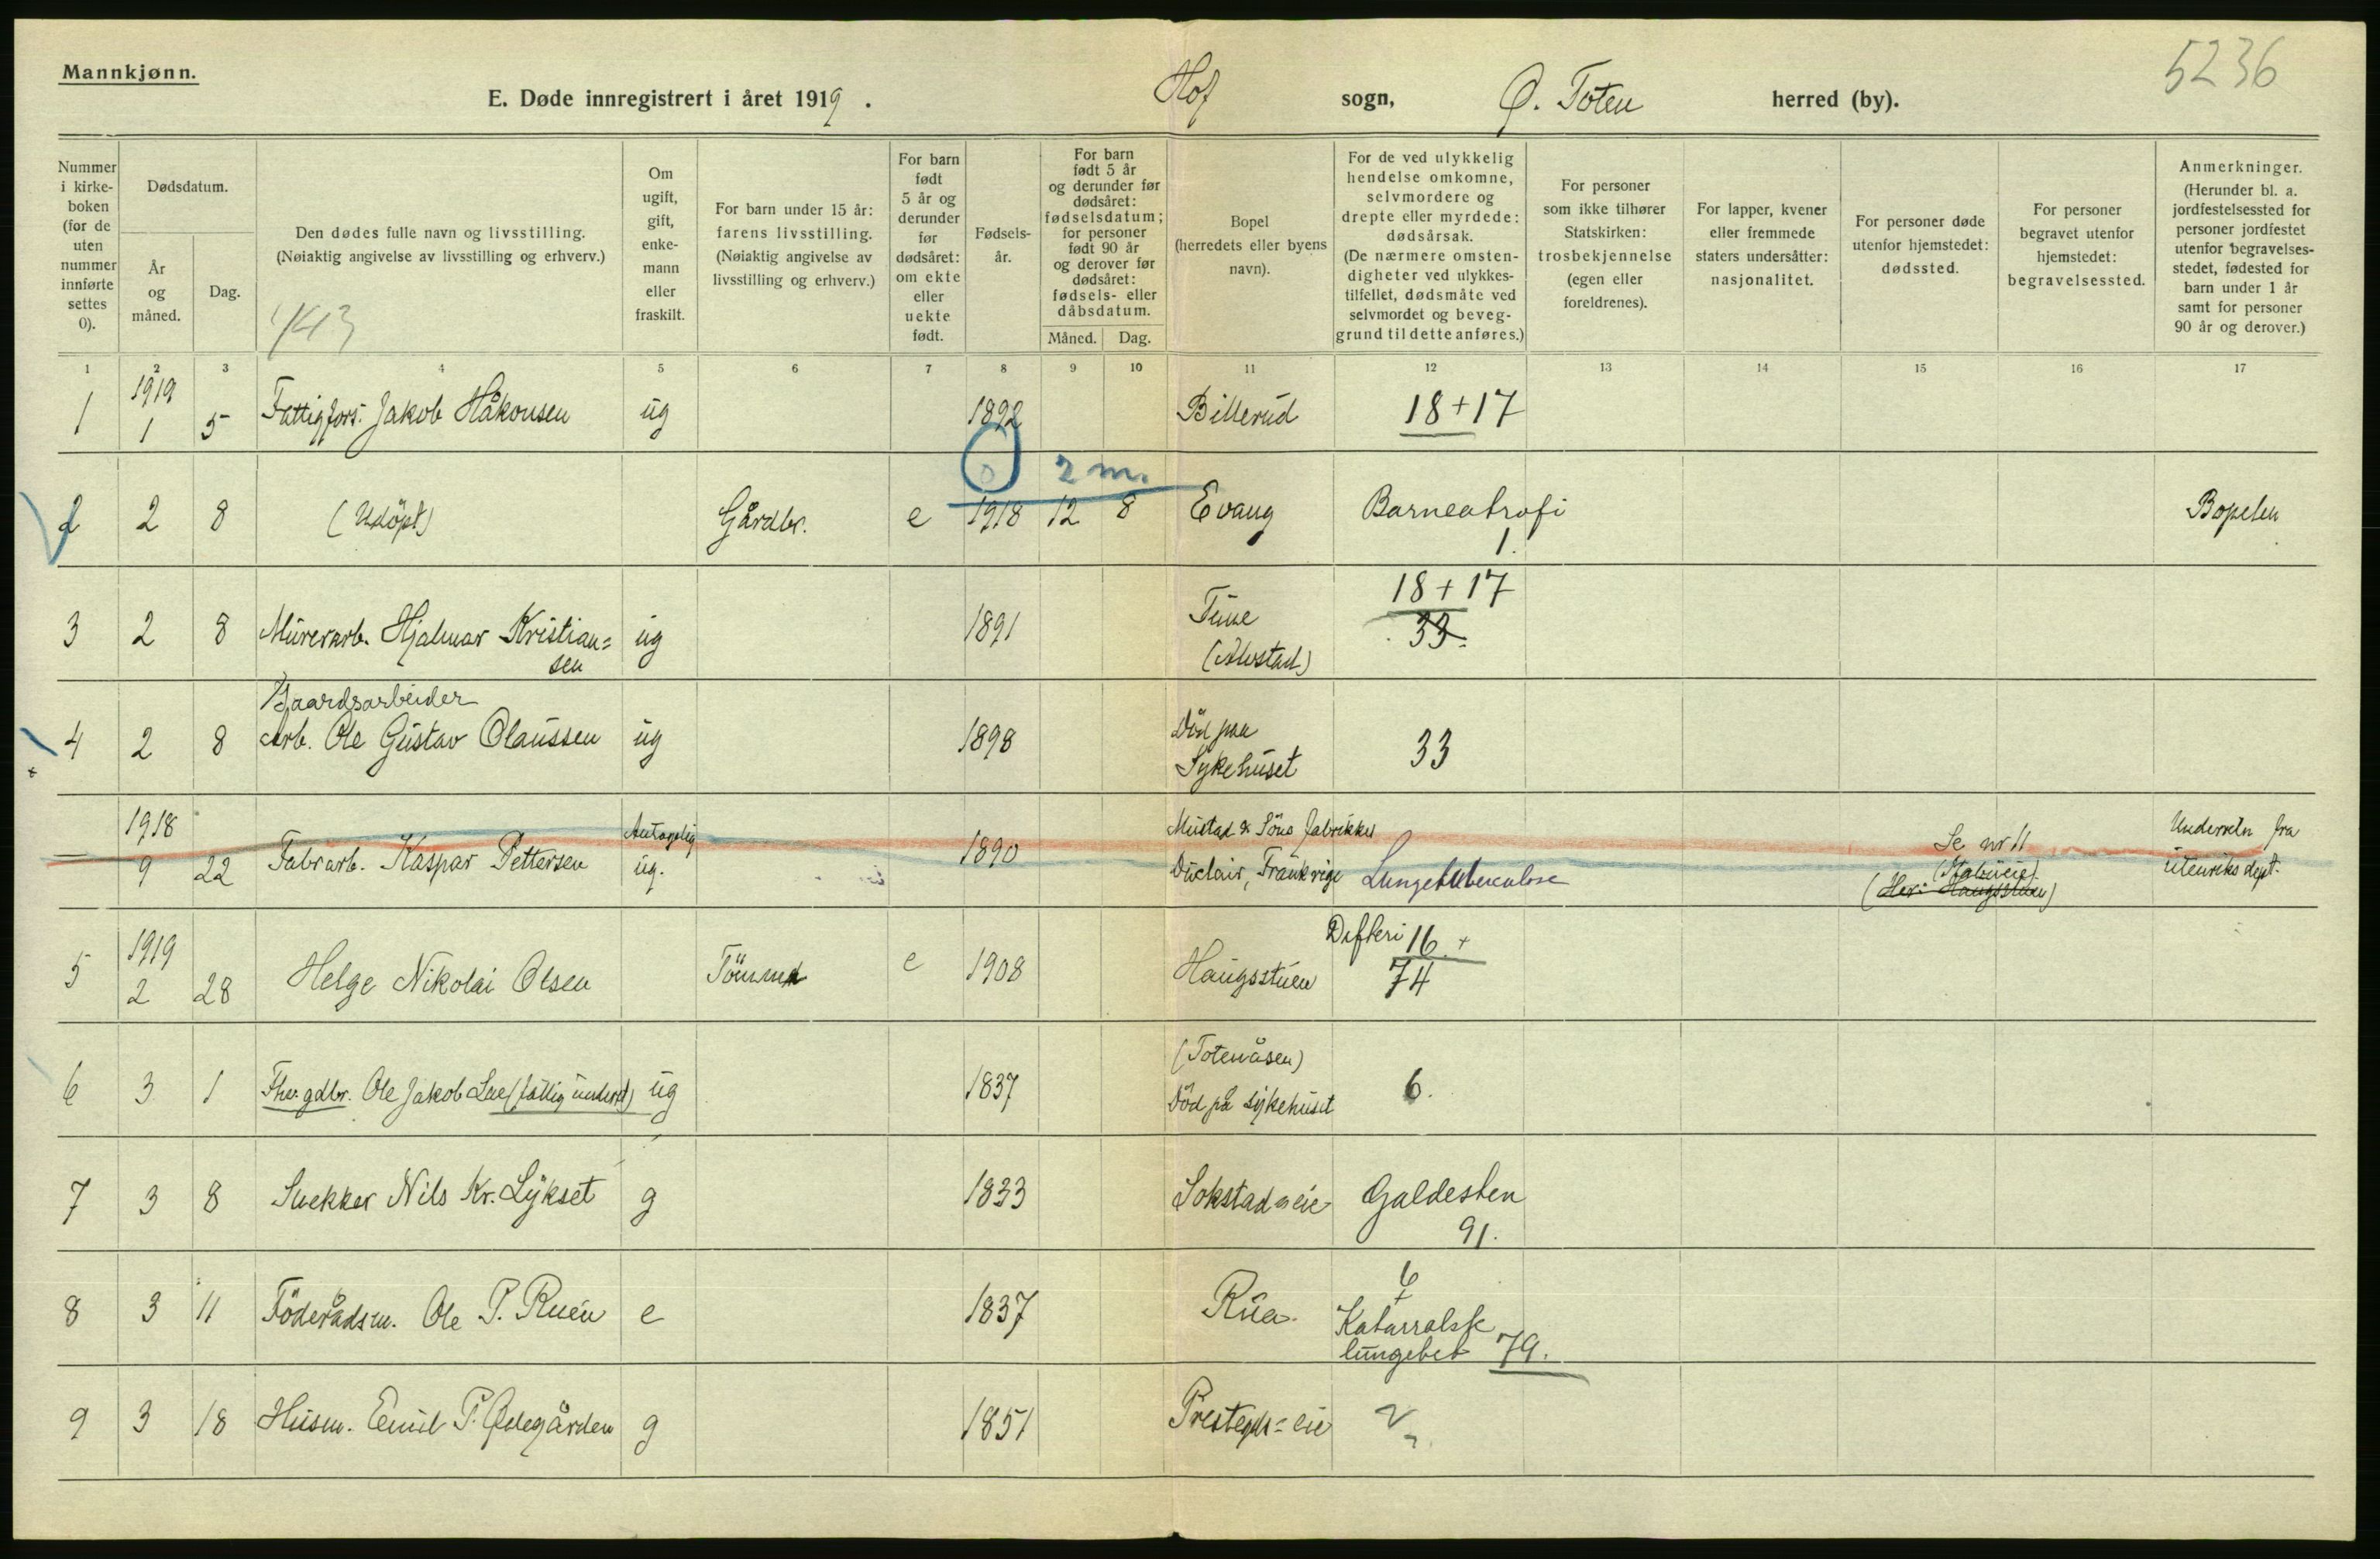 Mannkjønn.
5236
E. Døde innregistrert i året 1919. Hof sogn, Ø. Toten herred (by).
Nummer
i kirke-
boken
(for de
uten
nummer
innførte
settes
0).
Dødsdatum.
År
og
måned.
Dag.
Den dødes fulle navn og livsstilling.
(Nøiaktig angivelse av livsstilling og erhverv.)
443
Om
ugift,
gift,
enke-
mann
eller
fraskilt.
For barn under 15 år:
farens livsstilling.
(Nøiaktig angivelse av
livsstilling og erhverv.)
For barn
født
5 år og
derunder
før
dødsåret:
om ekte
eller
uekte
født.
Fødsels-
år.
For barn
født 5 år
og derunder før
dødsåret:
fødselsdatum;
for personer
født 90 år
og derover før
dødsåret:
fødsels- eller
dåbsdatum.
Måned. Dag.
Bopel
(herredets eller byens
navn).
For de ved ulykkelig
hendelse omkomne,
selvmordere og
drepte eller myrdede:
dødsårsak.
(De nærmere omsten-
digheter ved ulykkes-
tilfellet, dødsmåte ved
selvmordet og beveg-
grund til dette anføres.)
For personer
som ikke tilhører
Statskirken:
trosbekjennelse
(egen eller
foreldrenes).
For lapper, kvener
eller fremmede
staters undersåtter:
nasjonalitet.
For personer døde
utenfor hjemstedet:
dødssted.
For personer
begravet utenfor
hjemstedet:
begravelsessted.
Anmerkninger.
(Herunder bl. a.
jordfestelsessted for
personer jordfestet
utenfor begravelses-
stedet, fødested for
barn under 1 år
samt for personer
90 år og derover.)
1 2 3 4 5 6 7 8 9 10 11 12 13 14 15 16 17
1919
1 1 5 Fattigfors. Jakob Håkonsen ug 1892 Billerud 18+17
0 2 m.
2 2 8 (Udöpt) Gårdbr. e 1918 12 8 Evang Barneatrofi Bopelen
1.
18+17
3 2 8 Murerarb. Hjalmar Kristian= ug 1891 33.
sen (Alvstad)
Gaardsarbeider
4 2 8 Arb. Ole Gustav Olaussen ug 1898 Död paa 33
Sykehuset
1918 Antagelig Mustad & Söns fabrikker Se nr 11 Underretn fra
— 9 22 Fabrarb. Kaspar Pettersen ug. 1890 Duclair, Frankrige Lungetuberculose utenriks dept.
(Her: Haugsstuen)
1919 Difteri 16 +
5 2 28 Helge Nikolai Olsen e 1908 Haugsstuen 74
(Totenåsen)
6 3 1 Fhv. gdbr. Ole Jakob Lae (fattig underst) ug 1837 Död på sykehuset 6.
7 3 8 Snekker Nils Kr. Lykset g 1833 Sokstad eie Galdesten
91.
6
+
8 3 11 Föderådsm. Ole P. Ruen e 1837 Rua. Katarralsk
lungebet 79.
9 3 18 Husm. Emil P. Ødegården g 1851 Prestegds= eie